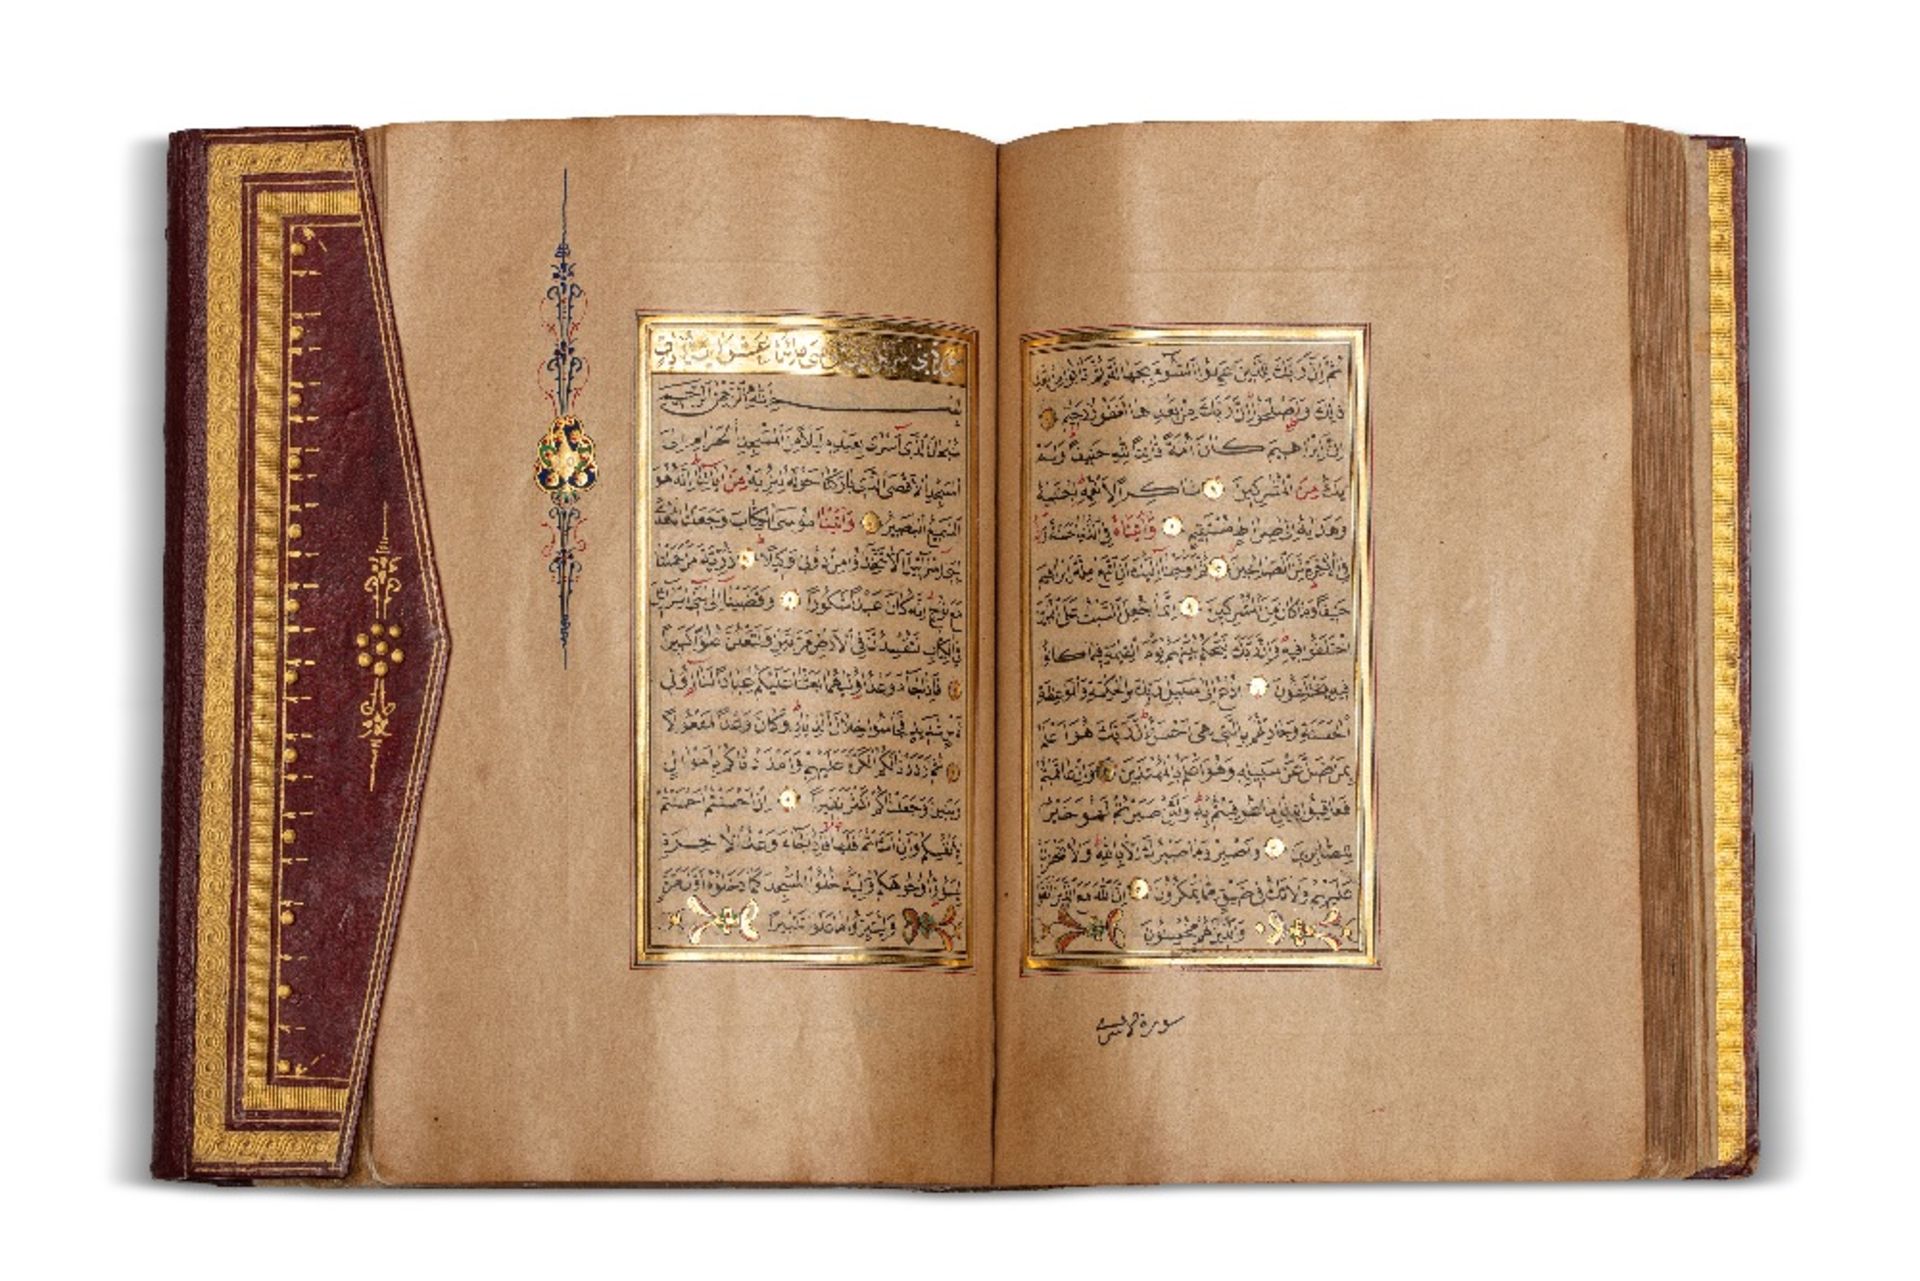 ثُمَّ اِنَّ رَبَّكَ لِلَّذٖينَ عَمِلُوا السُّوءَ بِجَهَالَةٍ ثُمَّ تَابُوا مِنْ بَعْدِ
ذٰلِكَ وَاَصْلَحُوا اِنَّ رَبَّكَ مِنْ بَعْدِهَا لَغَفُورٌ رَحٖيمٌ
اِنَّ اِبْرَاهٖيمَ كَانَ اُمَّةً قَانِتًا لِلّٰهِ حَنٖيفًا وَلَمْ
يَكُ مِنَ الْمُشْرِكٖينَ شَاكِرًا لِاَنْعُمِهِ اجْتَبٰيهُ
وَهَدٰيهُ اِلٰى صِرَاطٍ مُسْتَقٖيمٍ وَاٰتَيْنَاهُ فِي الدُّنْيَا حَسَنَةً وَاِنَّهُ
فِي الْاٰخِرَةِ لَمِنَ الصَّالِحٖينَ ثُمَّ اَوْحَيْنَا اِلَيْكَ اَنِ اتَّبِعْ مِلَّةَ اِبْرَاهٖيمَ
حَنٖيفًا وَمَا كَانَ مِنَ الْمُشْرِكٖينَ اِنَّمَا جُعِلَ السَّبْتُ عَلَى الَّذٖينَ
اخْتَلَفُوا فٖيهِ وَاِنَّ رَبَّكَ لَيَحْكُمُ بَيْنَهُمْ يَوْمَ الْقِيٰمَةِ فٖيمَا كَانُوا
فٖيهِ يَخْتَلِفُونَ اُدْعُ اِلٰى سَبٖيلِ رَبِّكَ بِالْحِكْمَةِ وَالْمَوْعِظَةِ
الْحَسَنَةِ وَجَادِلْهُمْ بِالَّتٖي هِيَ اَحْسَنُ اِنَّ رَبَّكَ هُوَ اَعْلَمُ
بِمَنْ ضَلَّ عَنْ سَبٖيلِهِ وَهُوَ اَعْلَمُ بِالْمُهْتَدٖينَ وَاِنْ عَاقَبْتُمْ
فَعَاقِبُوا بِمِثْلِ مَا عُوقِبْتُمْ بِهِ وَلَئِنْ صَبَرْتُمْ لَهُوَ خَيْرٌ
لِلصَّابِرٖينَ وَاصْبِرْ وَمَا صَبْرُكَ اِلَّا بِاللّٰهِ وَلَا تَحْزَنْ
عَلَيْهِمْ وَلَا تَكُ فٖي ضَيْقٍ مِمَّا يَمْكُرُونَ اِنَّ اللّٰهَ مَعَ الَّذٖينَ اتَّقَوْا
وَالَّذٖينَ هُمْ مُحْسِنُونَ
سورة
بِسْمِ اللّٰهِ الرَّحْمٰنِ الرَّحٖيمِ
سُبْحَانَ الَّذٖي اَسْرٰى بِعَبْدِهِ لَيْلًا مِنَ الْمَسْجِدِ الْحَرَامِ اِلَى
الْمَسْجِدِ الْاَقْصَى الَّذٖي بَارَكْنَا حَوْلَهُ لِنُرِيَهُ مِنْ اٰيَاتِنَا اِنَّهُ هُوَ
السَّمٖيعُ الْبَصٖيرُ وَاٰتَيْنَا مُوسَى الْكِتَابَ وَجَعَلْنَاهُ هُدًى
لِبَنٖي اِسْرَائٖيلَ اَلَّا تَتَّخِذُوا مِنْ دُونٖي وَكٖيلًا ذُرِّيَّةَ مَنْ حَمَلْنَا
مَعَ نُوحٍ اِنَّهُ كَانَ عَبْدًا شَكُورًا وَقَضَيْنَا اِلٰى بَنٖي اِسْرَائٖيلَ
فِي الْكِتَابِ لَتُفْسِدُنَّ فِي الْاَرْضِ مَرَّتَيْنِ وَلَتَعْلُنَّ عُلُوًّا كَبٖيرًا
فَاِذَا جَاءَ وَعْدُ اُولٰيهُمَا بَعَثْنَا عَلَيْكُمْ عِبَادًا لَنَا اُولٖي
بَاْسٍ شَدٖيدٍ فَجَاسُوا خِلَالَ الدِّيَارِ وَكَانَ وَعْدًا مَفْعُولًا
ثُمَّ رَدَدْنَا لَكُمُ الْكَرَّةَ عَلَيْهِمْ وَاَمْدَدْنَاكُمْ بِاَمْوَالٍ
وَبَنٖينَ وَجَعَلْنَاكُمْ اَكْثَرَ نَفٖيرًا اِنْ اَحْسَنْتُمْ اَحْسَنْتُمْ
لِاَنْفُسِكُمْ وَاِنْ اَسَاْتُمْ فَلَهَا فَاِذَا جَاءَ وَعْدُ الْاٰخِرَةِ
لِيَسُوؤُا وُجُوهَكُمْ وَلِيَدْخُلُوا الْمَسْجِدَ كَمَا دَخَلُوهُ اَوَّلَ مَرَّةٍ
وَلِيُتَبِّرُوا مَا عَلَوْا تَتْبٖيرًا